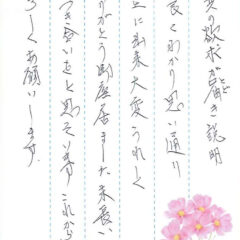 の欲求が届き説明
良くわかり思い通り
上に出来大変うれし
りがとう御座居ました末長い
つき合いをと思っています これから
ろしくお願いします。